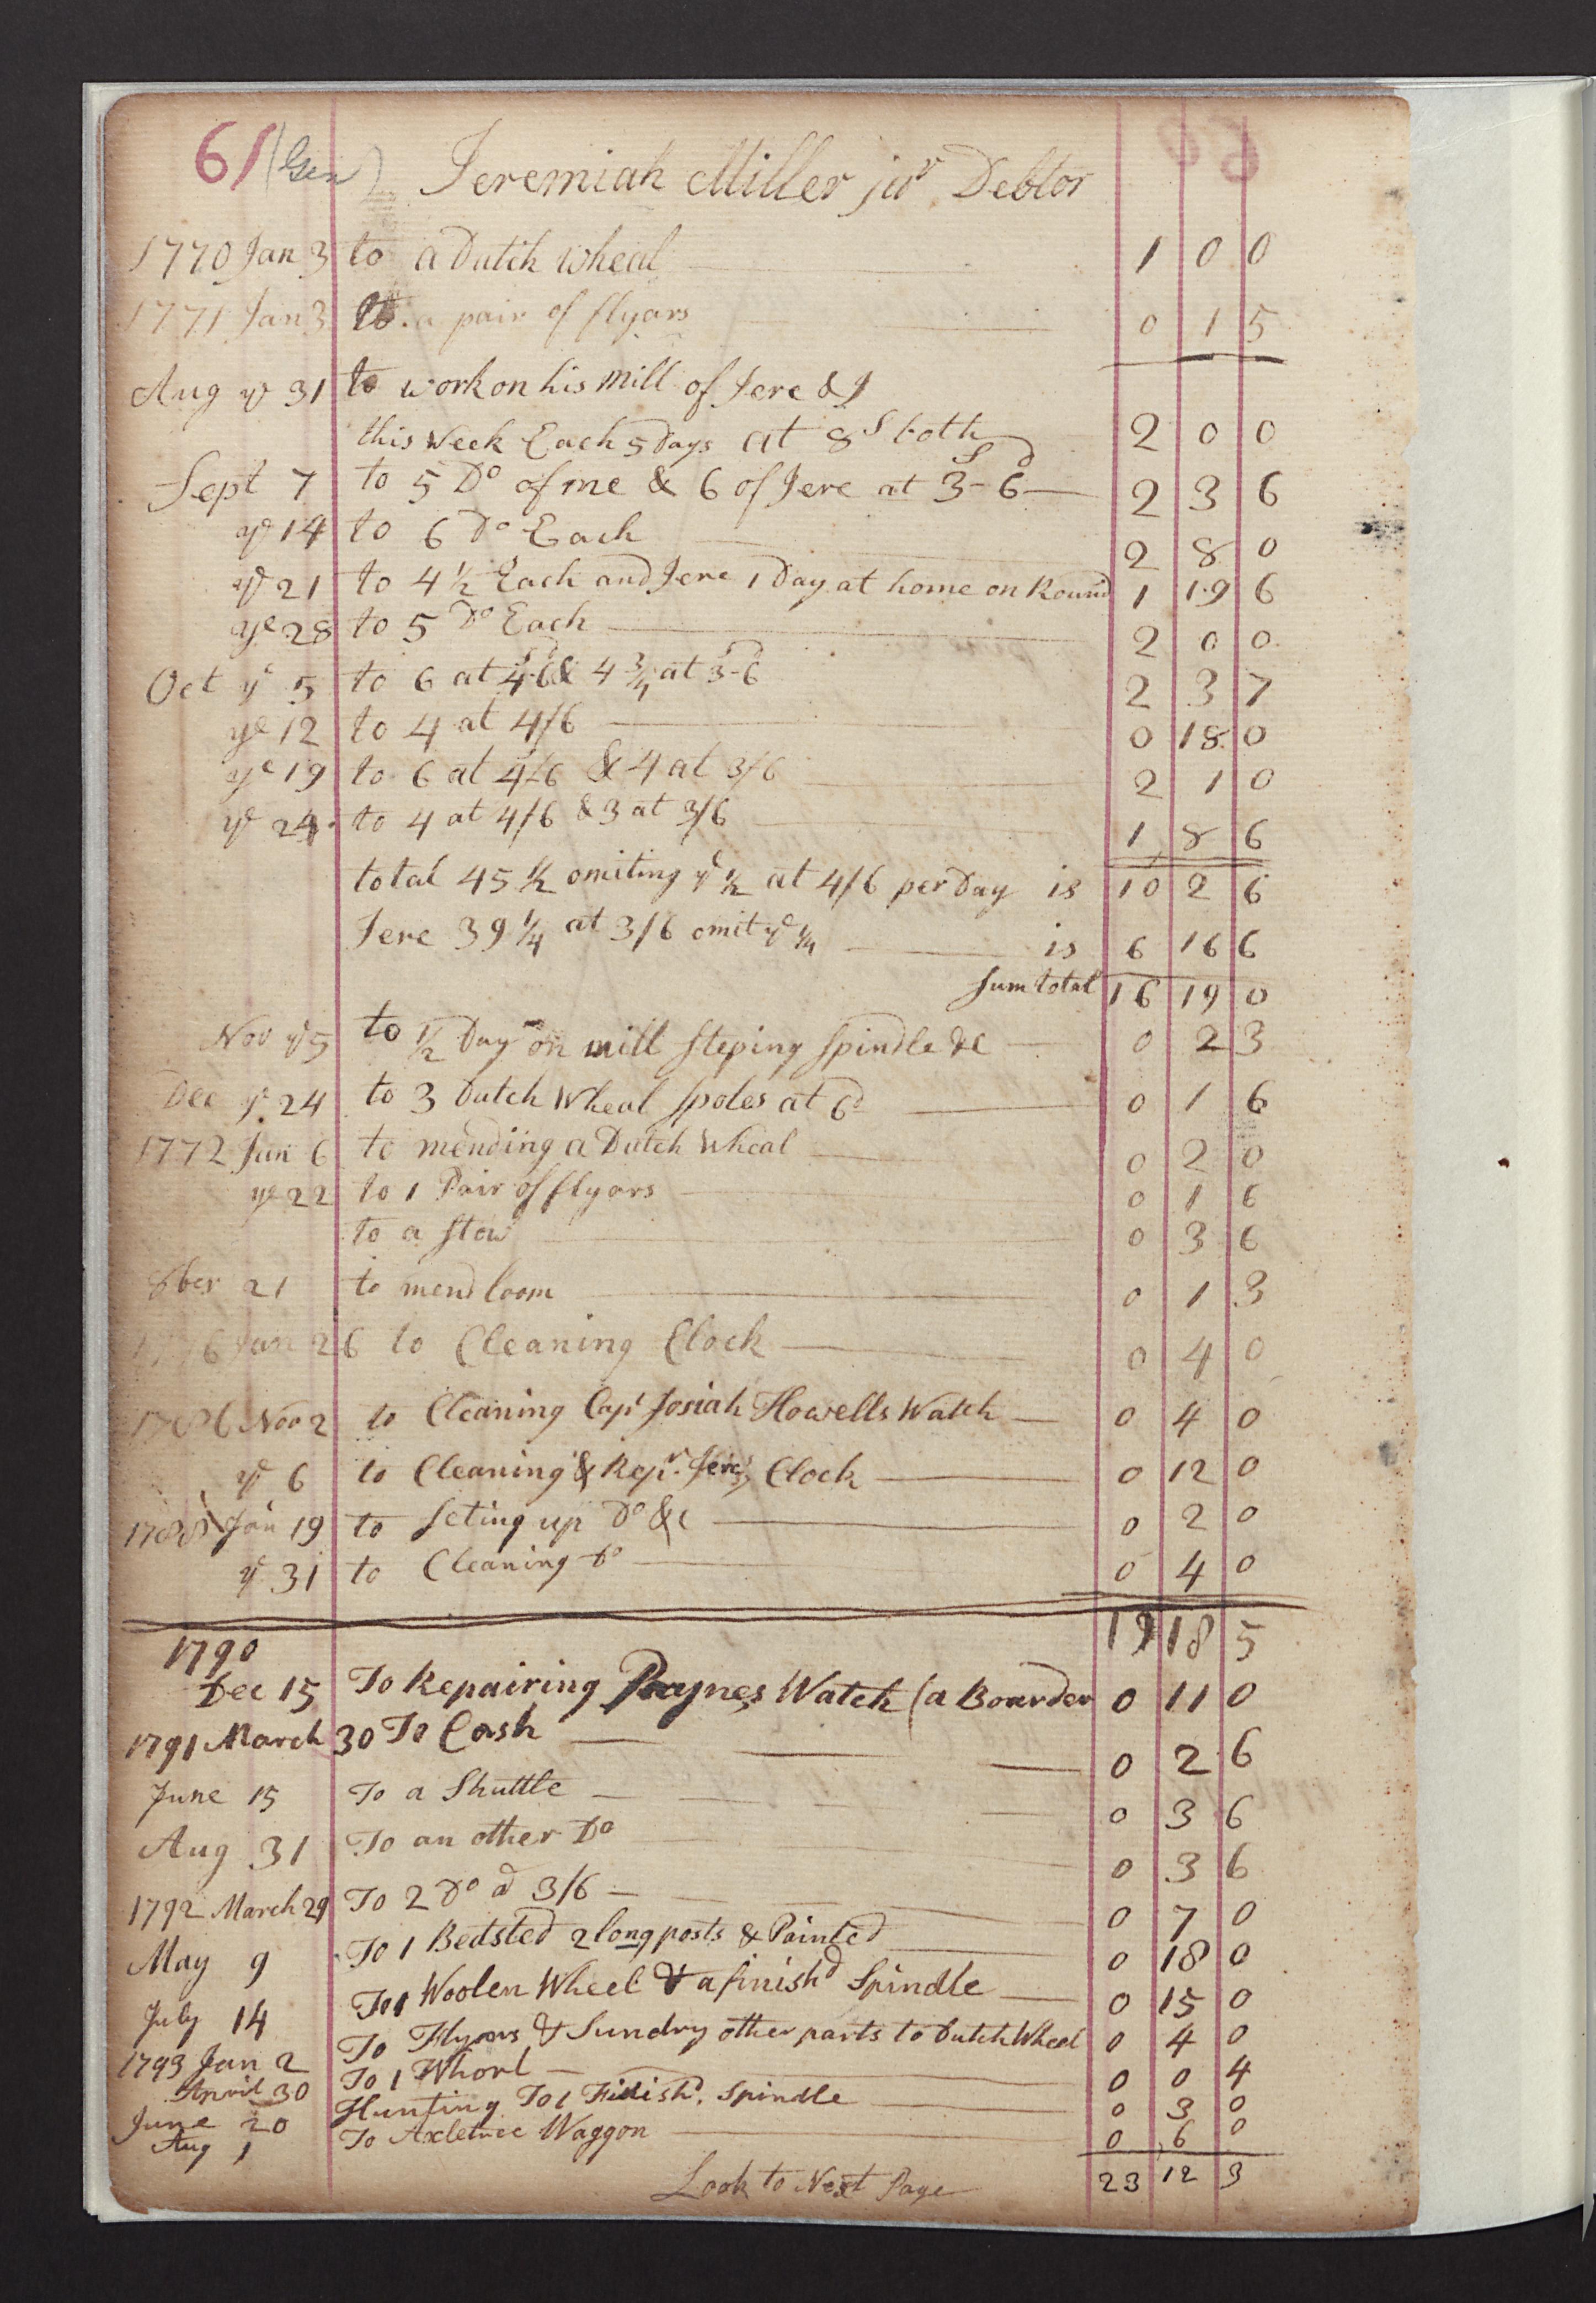 61 (Gen)
Jeremiah Miller jur Debtor
1770 Jan 3 to a Dutch wheal 1 0 0
1771 Jan 3 to a pair of flyars 0 1 5
Aug ye 31 to work on his mill of Jere & I
this Week Each 5 Days at 8s both 2 0 0
Sept 7 to 5 Do of me & 6 of Jere at 3s-6d 2 3 6
ye 14 to 6 Do Each 2 8 0
ye 21 to 4 1/2 Each and Jere 1 Day at home on Round 1 19 6
ye 28 to 5 Do Each 2 0 0
Oct ye 5 to 6 at 4-6 & 4 3/4 at 3-6 2 3 7
ye 12 to 4 at 4/6 0 18 0
ye 19 to 6 at 4/6 & 4 at 3/6 2 1 0
ye 24 to 4 at 4/6 & 3 at 3/6 1 8 6
total 45 1/2 omiting ye 1/2 at 4/6 per Day is 10 2 6
Jere 39 1/4 at 3/6 omit ye 1/4 is 6 16 6
sum total 16 19 0
Nov ye 5 to 1/2 Day on mill steping spindle &c 0 2 3
Dec ye 24 to 3 Dutch Wheal spoles at 6d 0 1 6
1772 Jan 6 to mending a Dutch Wheal 0 2 0
ye 22 to 1 Pair of flyars 0 1 6
to a stow 0 3 6
8ber 21 to mend loom 0 1 3
1776 Jan 26 to Cleaning Clock 0 4 0
1786 Nov 2 to Cleaning Capt Josiah Howells Watch 0 4 0
ye 6 to Cleaning & Repr. Jere's Clock 0 12 0
1788 Jan 19 to seting up Do &c 0 2 0
ye 31 to Cleaning Do 0 4 0
19 18 5
1790
Dec 15 To Repairing Paynes Watch (a Boarder 0 11 0
1791 March 30 To Cash 0 2 6
June 15 To a Shuttle 0 3 6
Aug 31 To an other Do 0 3 6
1792 March 29 To 2 Do a 3/6 0 7 0
May 9 To 1 Bedsted 2 long posts & Painted 0 18 0
July 14 To 1 Woolen Wheel & a finishd Spindle 0 15 0
1793 Jan 2 To Flyars & Sundry other parts to Dutch Wheel 0 4 0
April 30 To 1 Whorl 0 0 4
June 20 Hunting To 1 Finishd. Spindle 0 3 0
Aug 1 To Axletree Waggon 0 6 0
23 12 3
Look to Next Page